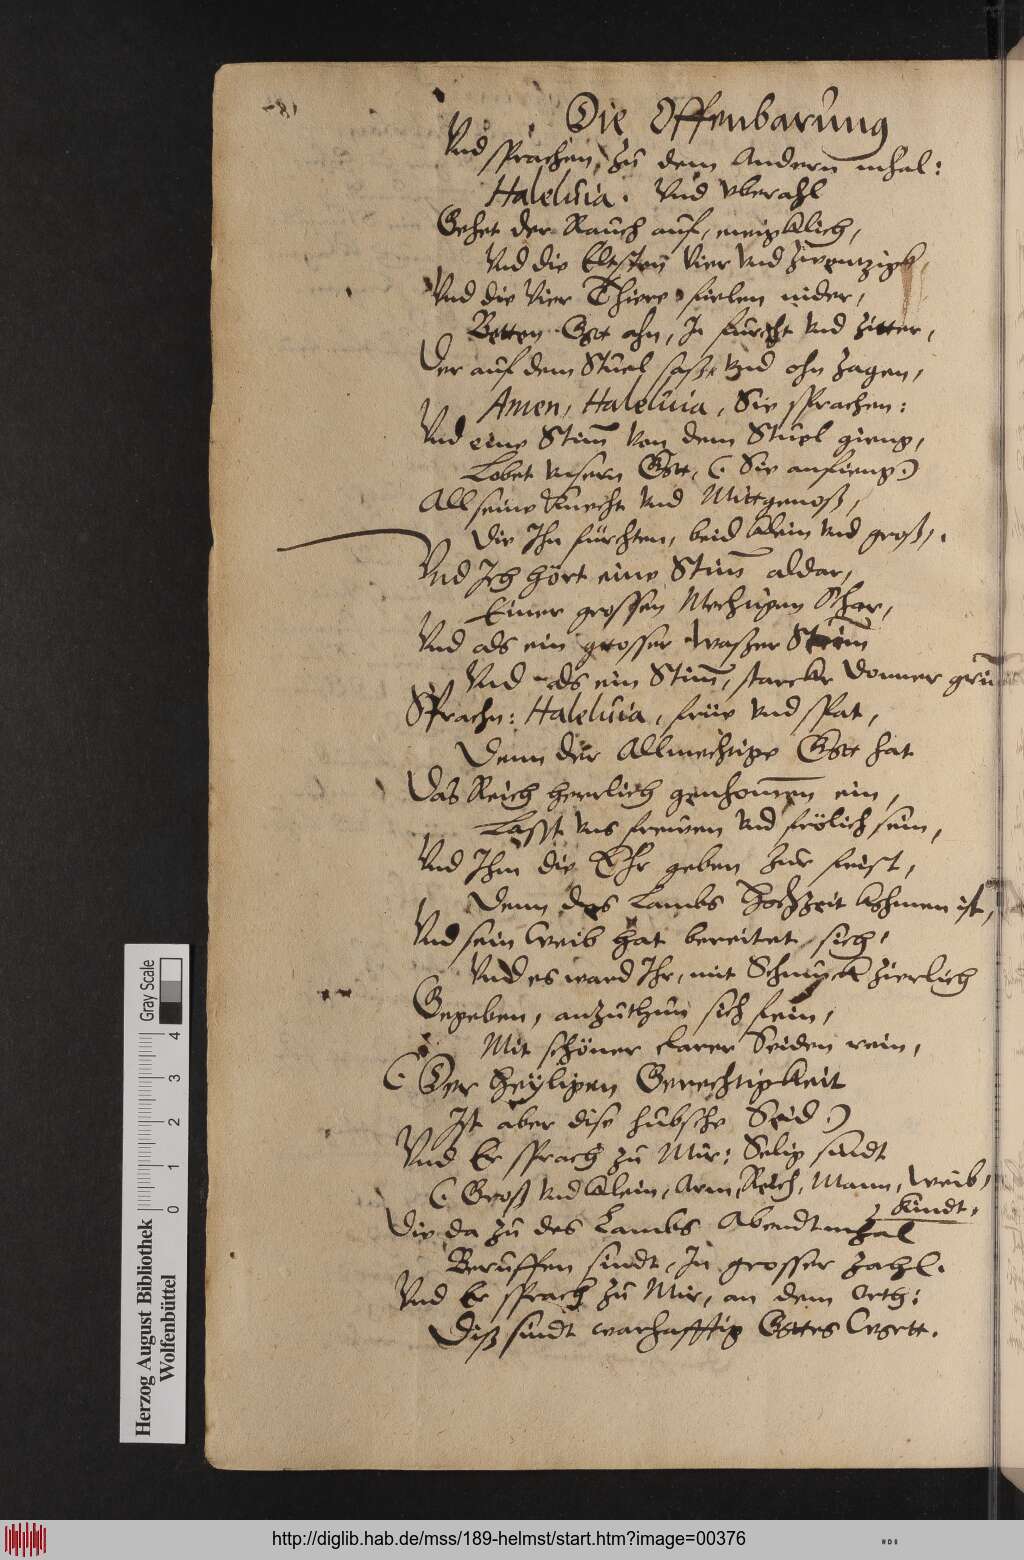 Die Offenbarung
Vnd sprachen, zu dem Andern mhal:
Haleluia. Vnd vberahl
Gehet der Rauch auf, ewigklich,
Vnd die Eltsten Vier vnd zwentzigk,
Vnd die Vier Thiere fielen nider,
Betten Gott ahn, In furcht vnd zitter,
Der auf dem Stuel sass vnd ohn zagen,
Amen, Haleluia, Sie sprachen:
Vnd eine Stim̄ von dem Stuel gieng,
Lobet vnsern Gott, (: Sie anfieng :)
All seine Knecht vnd Mittgenoß,
Die Ihn fürchten, beid klein vnd groß,.
Vnd Ich hört eine Stim̄ aldar,
Einer grossen Mechtigen Schar,
Vnd als ein grosser Waßer Stim̄
Vnd als ein Stim̄, starcker Donner grim̄
Sprachn: Haleluia, früe vnd spat,
Denn der Allmechtige Gott hat
Das Reich herrlich genhom̄en ein,
Lasst vns frewen vnd frölich sein,
Vnd Ihm die Ehr geben zur frist,
Denn des Lambs Hochzeit kohmen ist,
Vnd sein Weib hat bereitet sich,
Vnd es ward Ihr, mit Schmuck zierlich
Gegeben, anzuthun sich fein,
Mit schöner clarer Seiden rein,
(: Der heyligen Gerechtigkeit
Ist aber dise hubsche Seid :)
Vnd Er sprach zu Mir: Selig sindt
(: Groß vnd klein, Arm, Reich, Mann, Weib,
kindt,
Die da zu des Lambs Abendtmhal
Beruffen sindt, In grosser zahl.
Vnd Er sprach zu Mir, an dem Orth:
Diß sindt warhafftig Gottes Wortt.
Gray Scale
0 1 2 3 4
Herzog August Bibliothek
Wolfenbüttel
http://diglib.hab.de/mss/189-helmst/start.htm?image=00376